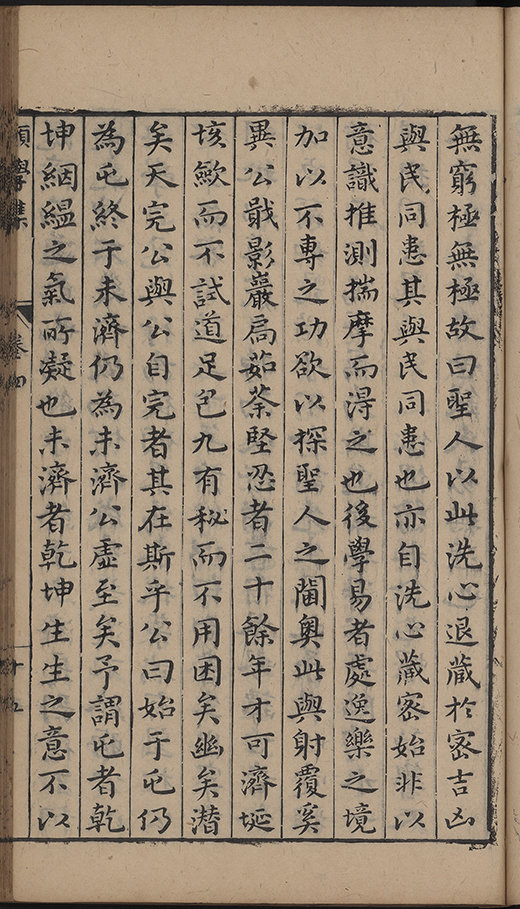 無窮極無極故曰聖人以此洗心退藏於密吉凶
與民同患其與民同患也亦自洗心藏密始非以
意識推測揣摩而得之也後學易者處逸樂之境
加以不專之功欲以探聖人之閫奥此與射覆奚
異公戢影巖扃茹荼堅忍者二十餘年才可濟埏
垓歛而不試道足包九有秘而不用困矣幽矣潛
矣天完公與公自完者其在斯乎公曰始于屯仍
為屯終于未濟仍為未濟公虛至矣予謂屯者乾
坤絪縕之氣所凝也未濟者乾坤生生之意不以
學集 卷四